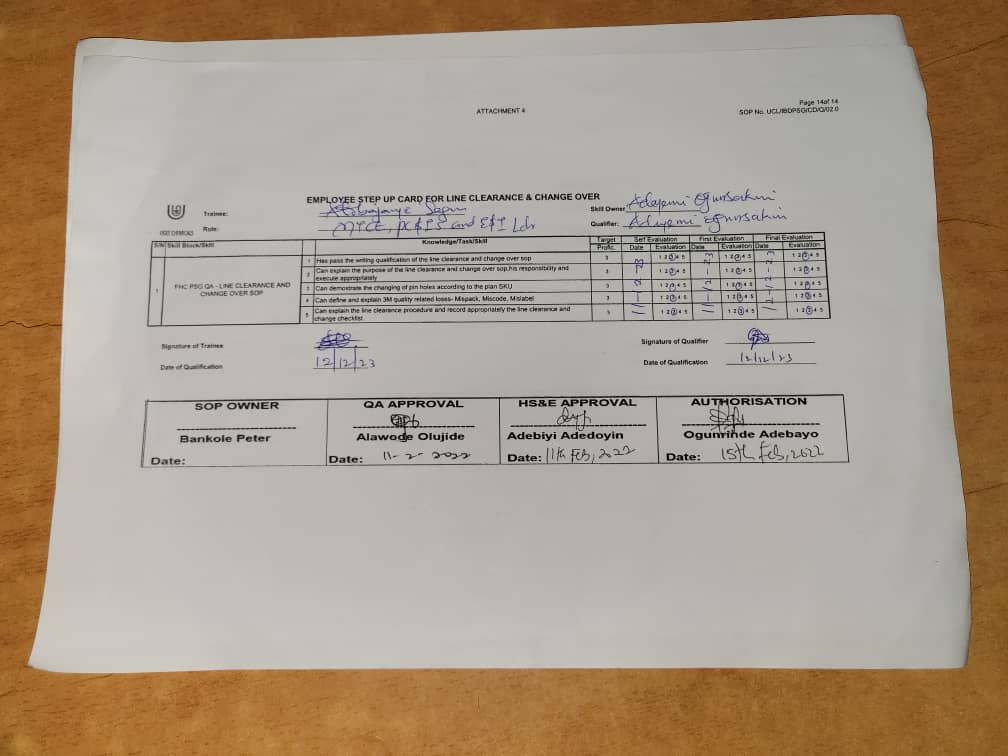 Page 14of 14
ATTACHMENT 4
SOP No. UCL/IBDPSG/CD/Q/02.0
EMPLOYEE STEP UP CARD FOR LINE CLEARANCE & CHANGE OVER
Trainee:
Skill Owner Adeyemi Ogunsakin
Role: PC&IS and E&I Ldr
Qualifier: Adeyemi Ogunsakin
S/N Skill Block/Skill Knowledge/Task/Skill Target Profic. Self Evaluation First Evaluation Final Evaluation
Date Evaluation Date Evaluation Date Evaluation
1 FHC PSG QA - LINE CLEARANCE AND CHANGE OVER SOP
1 Has pass the writing qualification of the line clearance and change over sop 3 1 2 3 4 5 1 2 3 4 5 1 2 3 4 5
2 Can explain the purpose of the line clearance and change over sop,his responsibility and
execute appropriately 3 1 2 3 4 5 1 2 3 4 5 1 2 3 4 5
3 Can demostrate the changing of pin holes according to the plan SKU 3 1 2 3 4 5 1 2 3 4 5 1 2 3 4 5
4 Can define and explain 3M quality related loses- Mispack, Miscode, Mislabel 3 1 2 3 4 5 1 2 3 4 5 1 2 3 4 5
5 Can explain the line clearance procedure and record appropriately the line clearance and
change checklist 3 1 2 3 4 5 1 2 3 4 5 1 2 3 4 5
11-12-23
11-12-23
Signature of Trainee
Signature of Qualifier
Date of Qualification 12/12/23
Date of Qualification 12/12/23
SOP OWNER QA APPROVAL HS&E APPROVAL AUTHORISATION
Bankole Peter Alawode Olujide Adebiyi Adedoyin Ogunrinde Adebayo
Date: Date: 11-2-2022 Date: 11th Feb, 2022 Date: 15th Feb, 2022